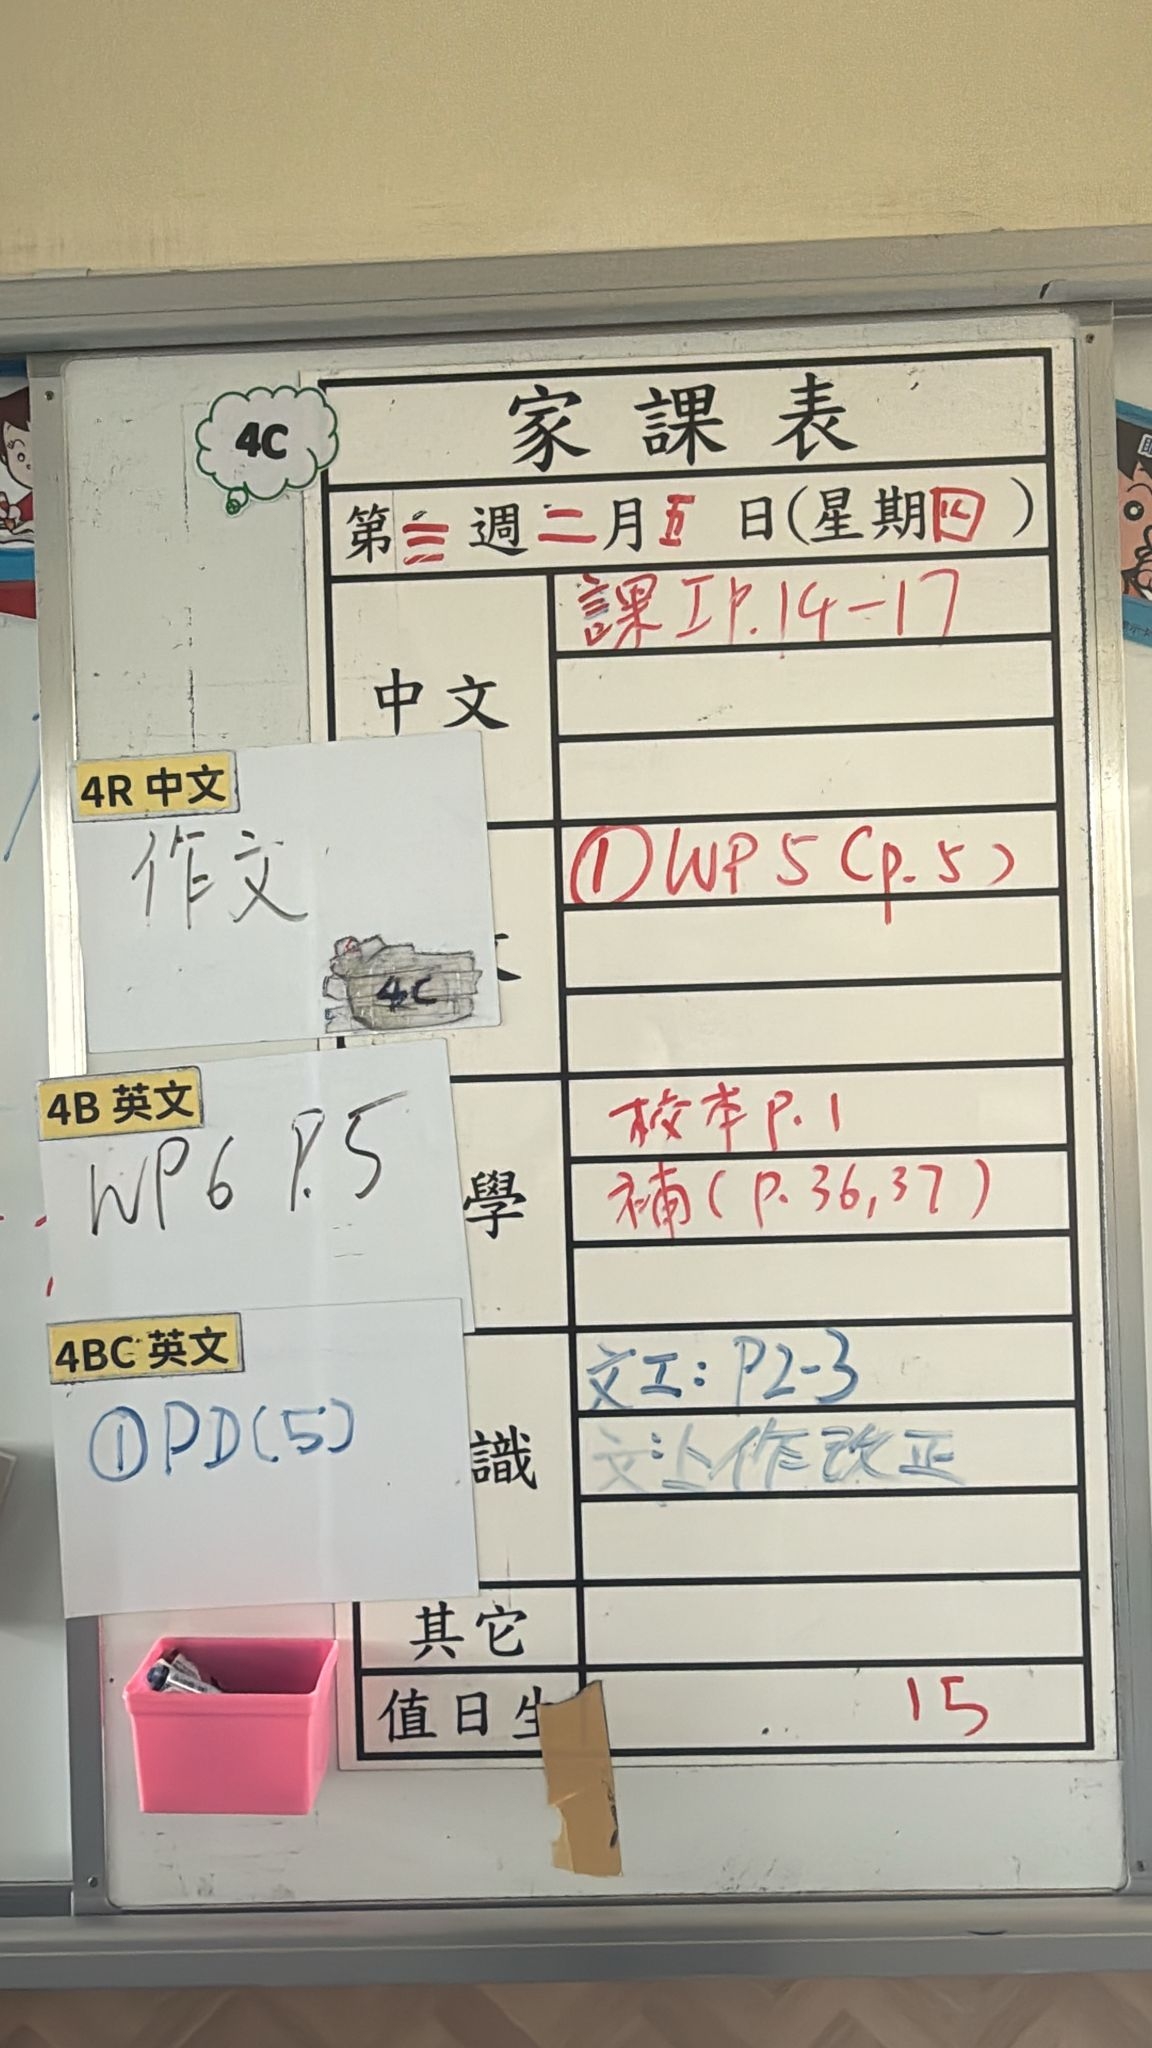 4C
家課表
第三週二月五日(星期四)
中文
課工P.14-17
4R 中文
作文
4C
文
①WP5(p.5)
4B 英文
WP6 P.5
學
校本p.1
補(p.36,37)
4BC 英文
①PD(5)
識
文工:P2-3
作改正
其它
值日生
15